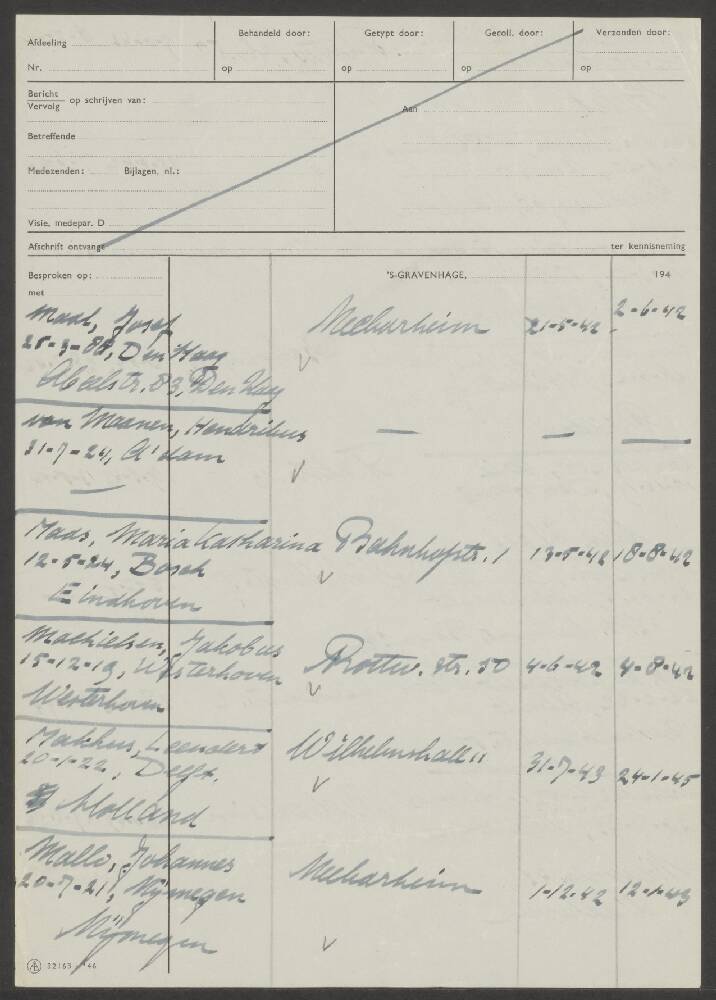 Afdeeling
Behandeld door:
Getypt door:
Gecoll. door:
Verzonden door:
Nr.
op
op
op
op
Bericht
Vervolg op schrijven van:
Aan
Betreffende
Medezenden: Bijlagen, nl.:
Visie, medepar. D
Afschrift ontvangt ter kennisneming
Besproken op: 'S-GRAVENHAGE, 194
met
Maal, Josef Neckarheim 21-5-42 2-6-42
Den Haag
83, Den Haag
van Maanen, Hendrikus — — —
31-7-24, A'dam
—
Maas, Maria Katharina Bahnhofstr. 1 13-5-42 18-8-42
12-5-24, Bosch
Eindhoven
Machielsen, Jakobus Rottw. str. 50 4-6-42 4-8-42
15-12-19, Westerhoven
Westerhoven
Makkus, Leendert Wilhelmshalle" 31-7-43 24-1-45
20-1-22, Delft.
Holland
Mallo, Johannes Neckarheim 1-12-42 12-1-43
20-7-21, Nijmegen
Nijmegen
32163 - '46